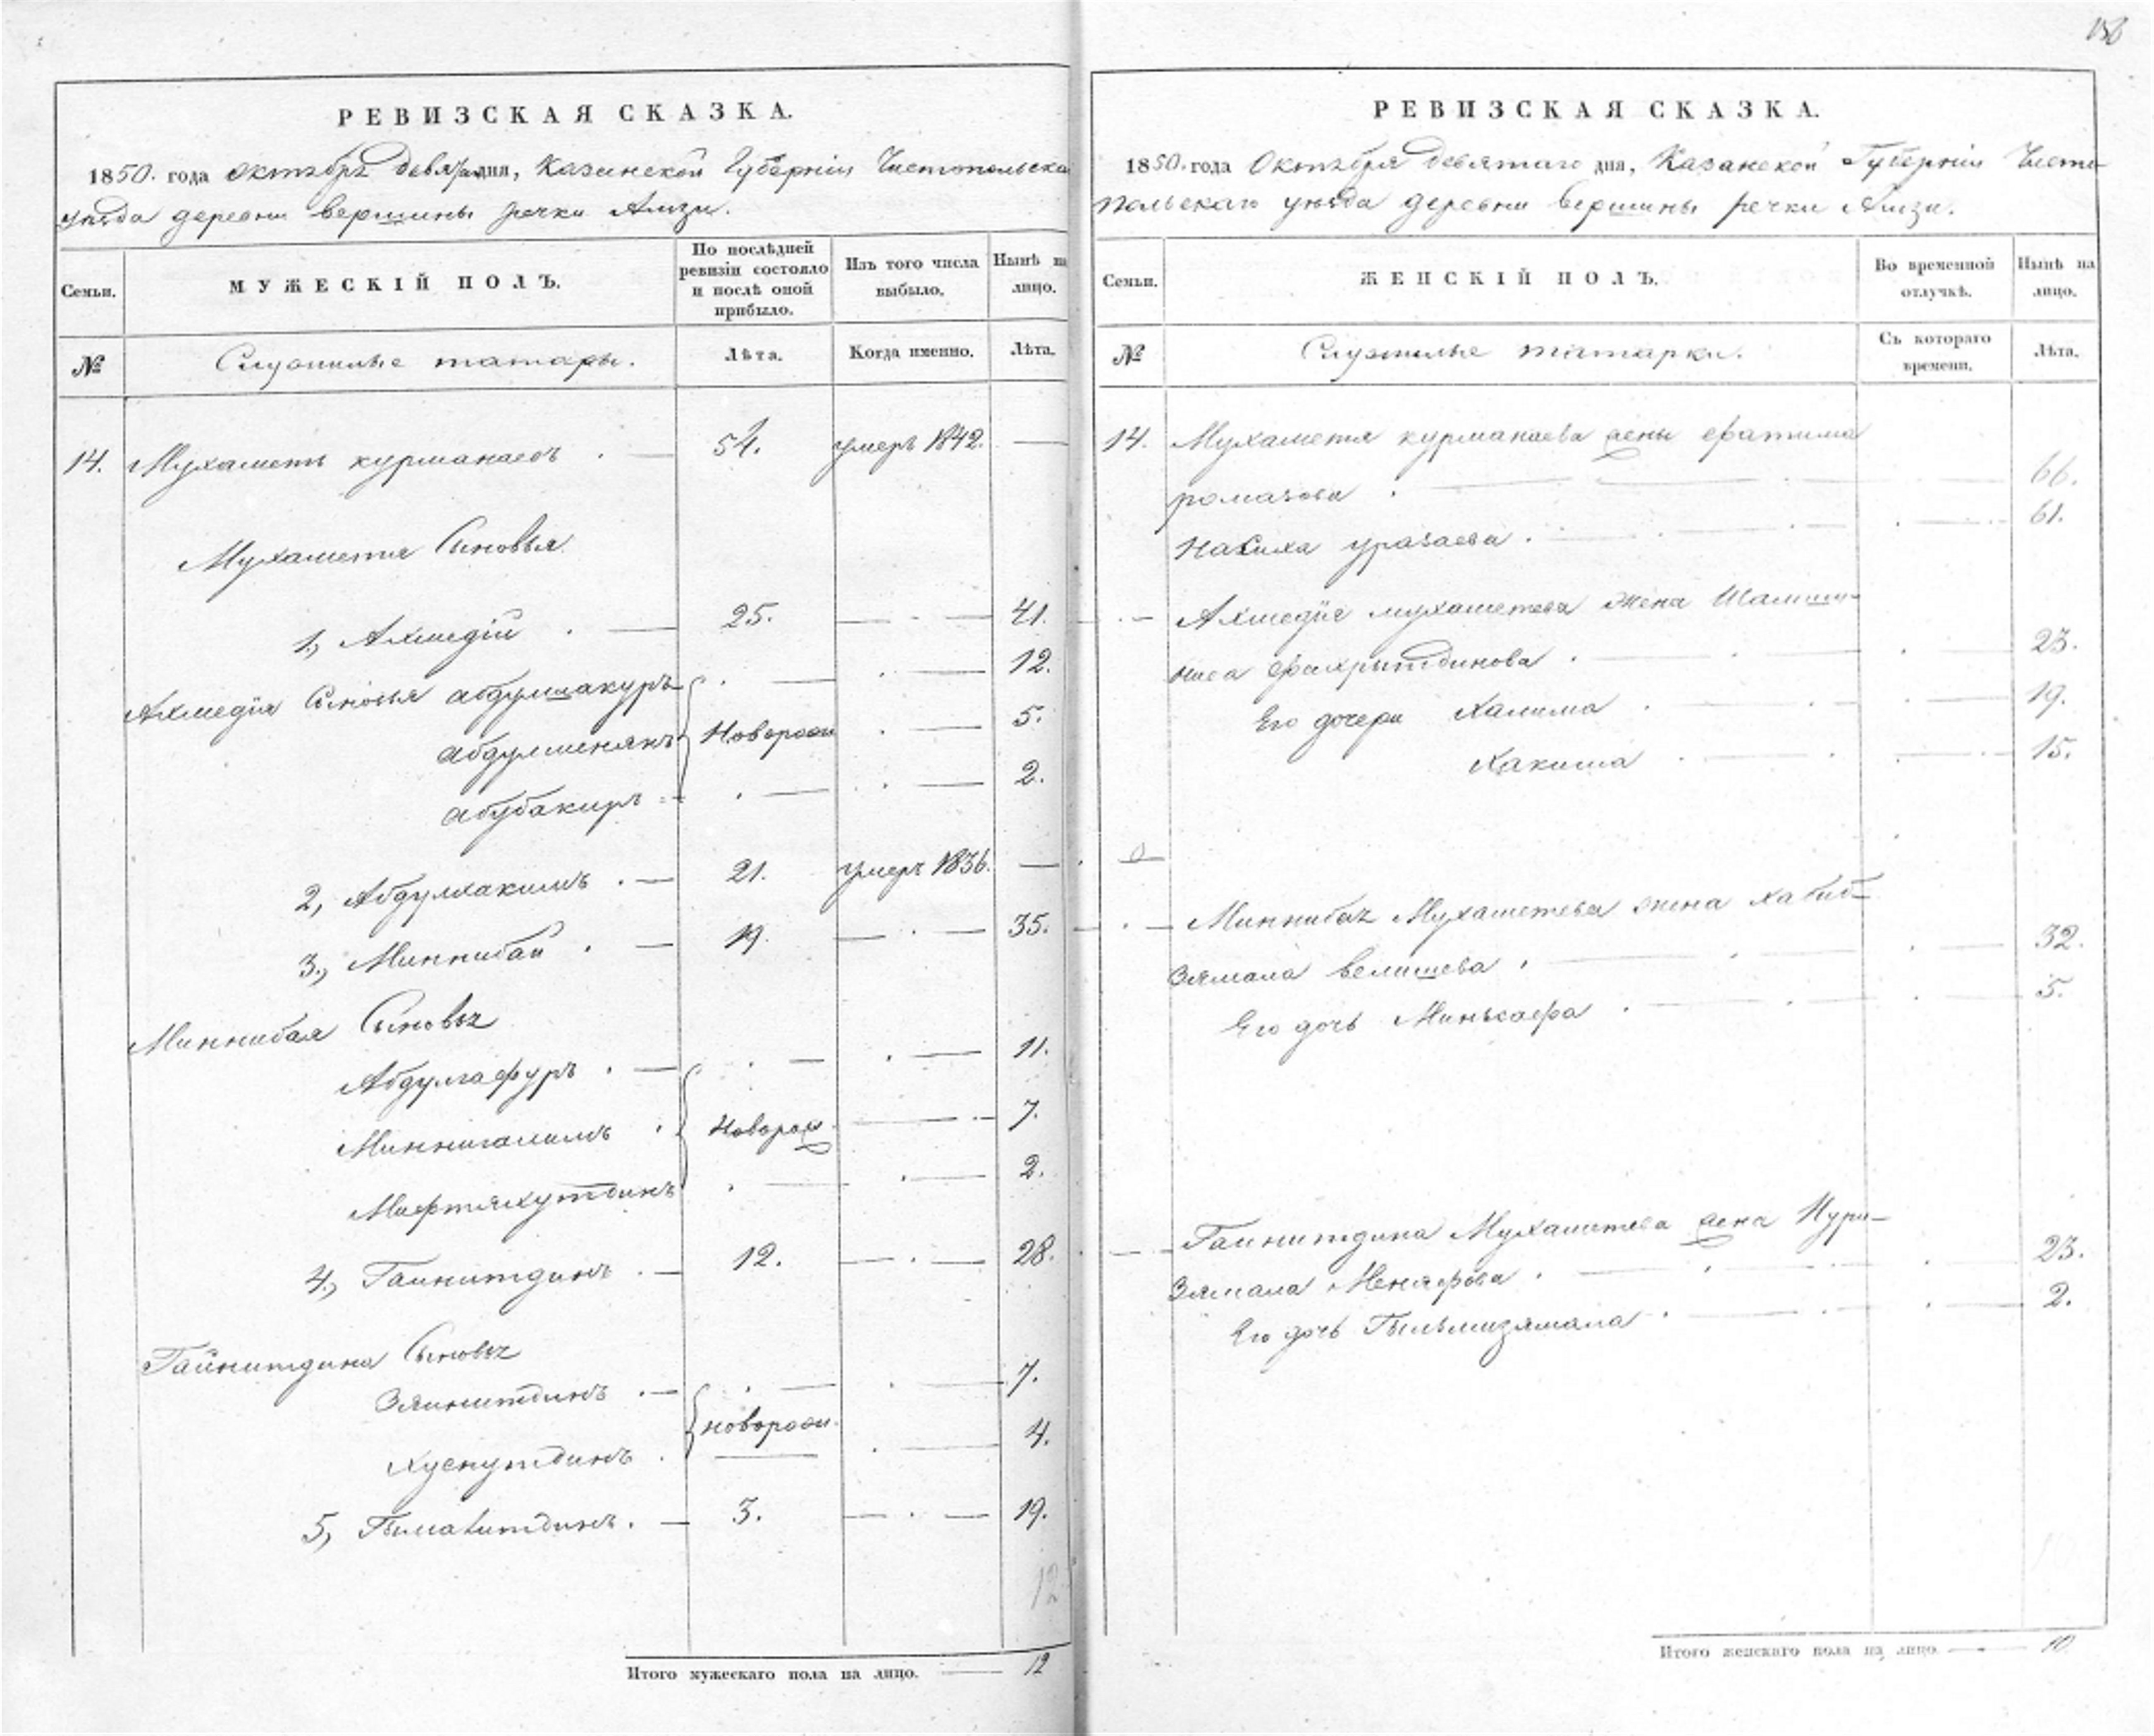 156
РЕВИЗСКАЯ СКАЗКА.
1850. года октября девя дня, Казанской Губерніи Чистопольска
уѣзда деревни вершины речки Амзи.
Семьи.
МУЖЕСКІЙ ПОЛЪ.
По послѣдней ревизіи состояло и послѣ оной прибыло.
Изъ того числа выбыло.
Нынѣ на лицо.
№
Служилые татары.
Лѣта.
Когда именно.
Лѣта.
14. Мухаметь курманаевъ . — 54. умеръ 1842. —
Мухаметя Сыновья
1, Ахмедій . — 25. — 41.
Ахмедія Сыновья абдулшакуръ — 12.
абдулменякъ Новорож 5.
абубакиръ — 2.
2, Абдулхакимъ . — 21. умеръ 1836. —
3, Миннибай . — 19. — 35.
Миннибая Сыновья
Абдулгафуръ . — 11.
Миннигалимъ Новорож 7.
Мифтяхутдинъ — 2.
4, Гайнитдинъ . — 12. — 28.
Гайнитдина Сыновья
Зяинитдинъ . — 7.
Хуснутдинъ . новорож. 4.
5, — 3. — 19.
12
Итого мужескаго пола на лицо. — 12
РЕВИЗСКАЯ СКАЗКА.
1850. года Октября девятаго дня, Казанской Губерніи Чисто-
польскаго уѣзда деревни вершины речки Амзи.
Семьи.
ЖЕНСКІЙ ПОЛЪ.
Во временной отлучкѣ.
Нынѣ на лицо.
№
Служилые татарки.
Съ котораго времени.
Лѣта.
14. Мухаметя курманаева жены фатима
ромазова . — 66.
Насиха уразаева . — 61.
Ахмедія мухаметева жена Шамши-
ниса фахрытдинова . — 23.
Его дочери Халима . — 19.
Хакима . — 15.
Миннибая Мухаметева жена хабиб-
зямала велишева . — 32.
Его дочь Миньсафа . — 5.
Гайнитдина Мухаметева жена Нури-
зямала Меняфова . — 23.
Его дочь Гыльмизямала . — 2.
Итого женскаго пола на лицо. — 10.